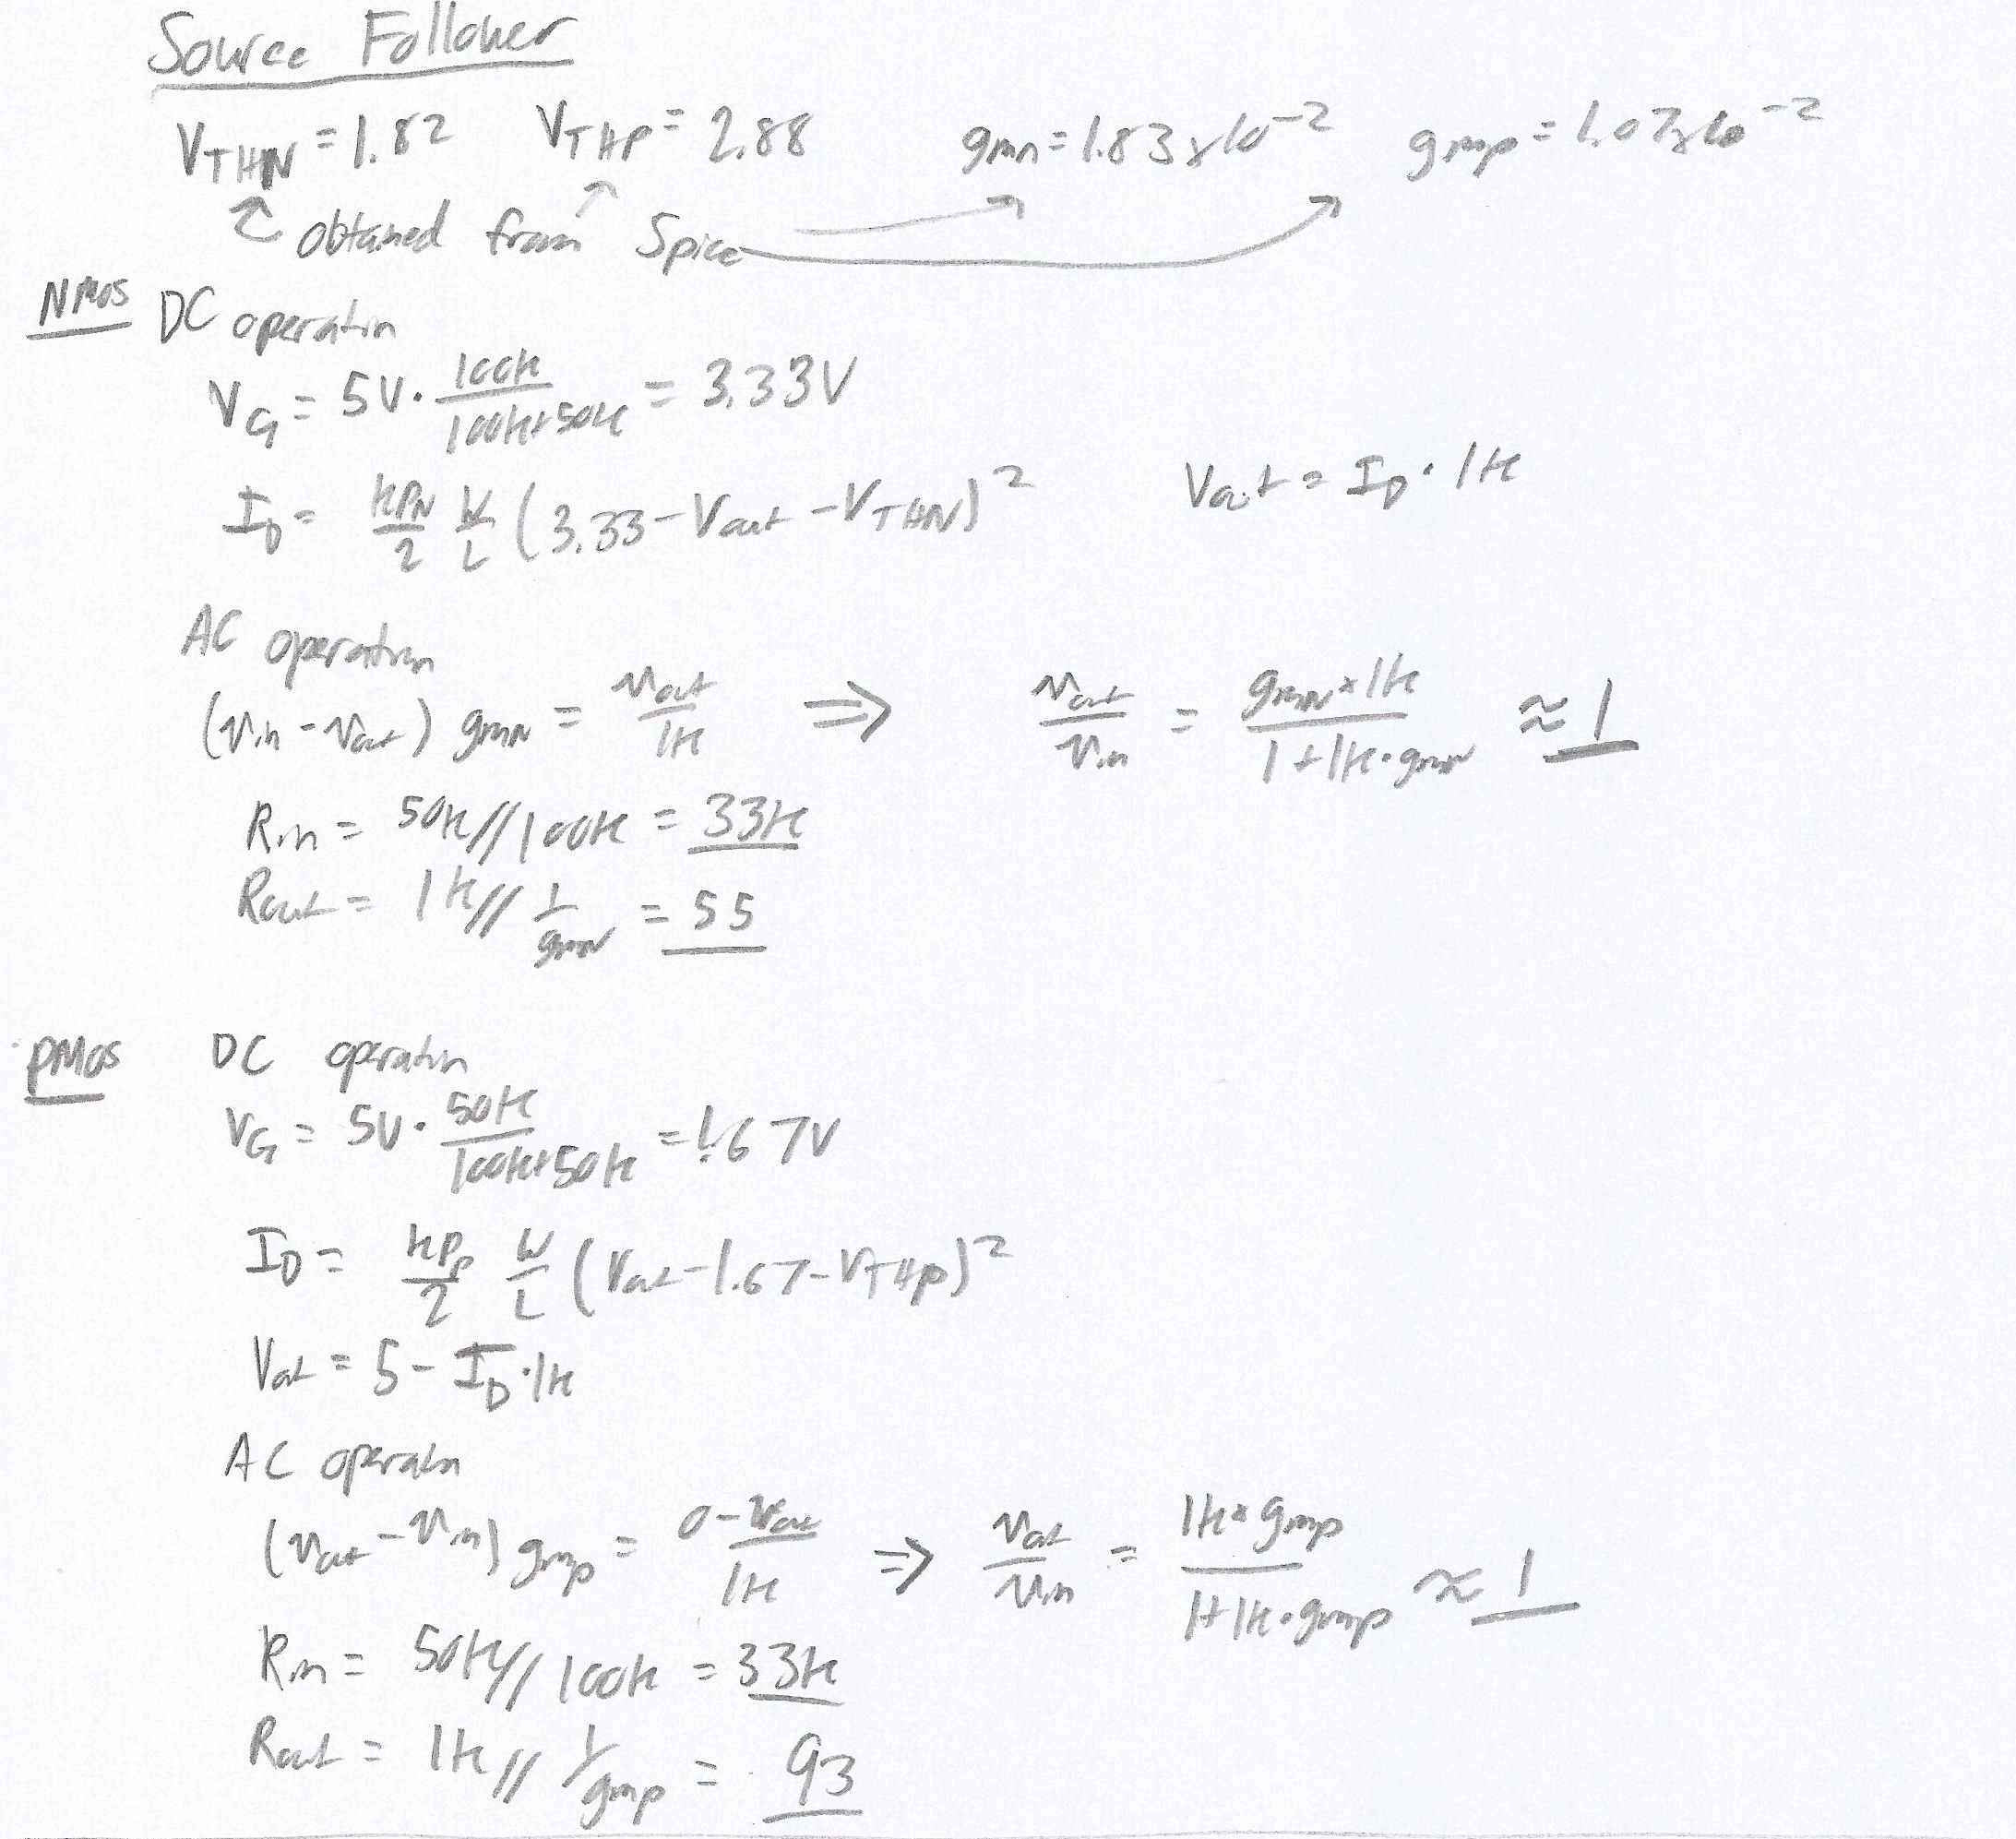 Source Follower
V_THN = 1.82 V_THP = 2.88 gmn = 1.83 x 10^-2 gmp = 1.07 x 10^-2
obtained from Spice
NMOS DC operation
V_G = 5V · 100k / (100k + 50k) = 3.33V
I_D = KP_N/2 W/L (3.33 - Vout - V_THN)^2 Vout = I_D · 1k
AC operation
(vin - vout) gmn = vout/1k => vout/vin = gmn x 1k / (1 + 1k · gmn) ≈ 1
Rin = 50k // 100k = 33k
Rout = 1k // 1/gmn = 55
PMOS DC operation
V_G = 5V · 50k / (100k + 50k) = 1.67V
I_D = KP_P/2 W/L (Vout - 1.67 - V_THP)^2
Vout = 5 - I_D · 1k
AC operation
(vout - vin) gmp = (0 - vout)/1k => vout/vin = 1k x gmp / (1 + 1k · gmp) ≈ 1
Rin = 50k // 100k = 33k
Rout = 1k // 1/gmp = 93